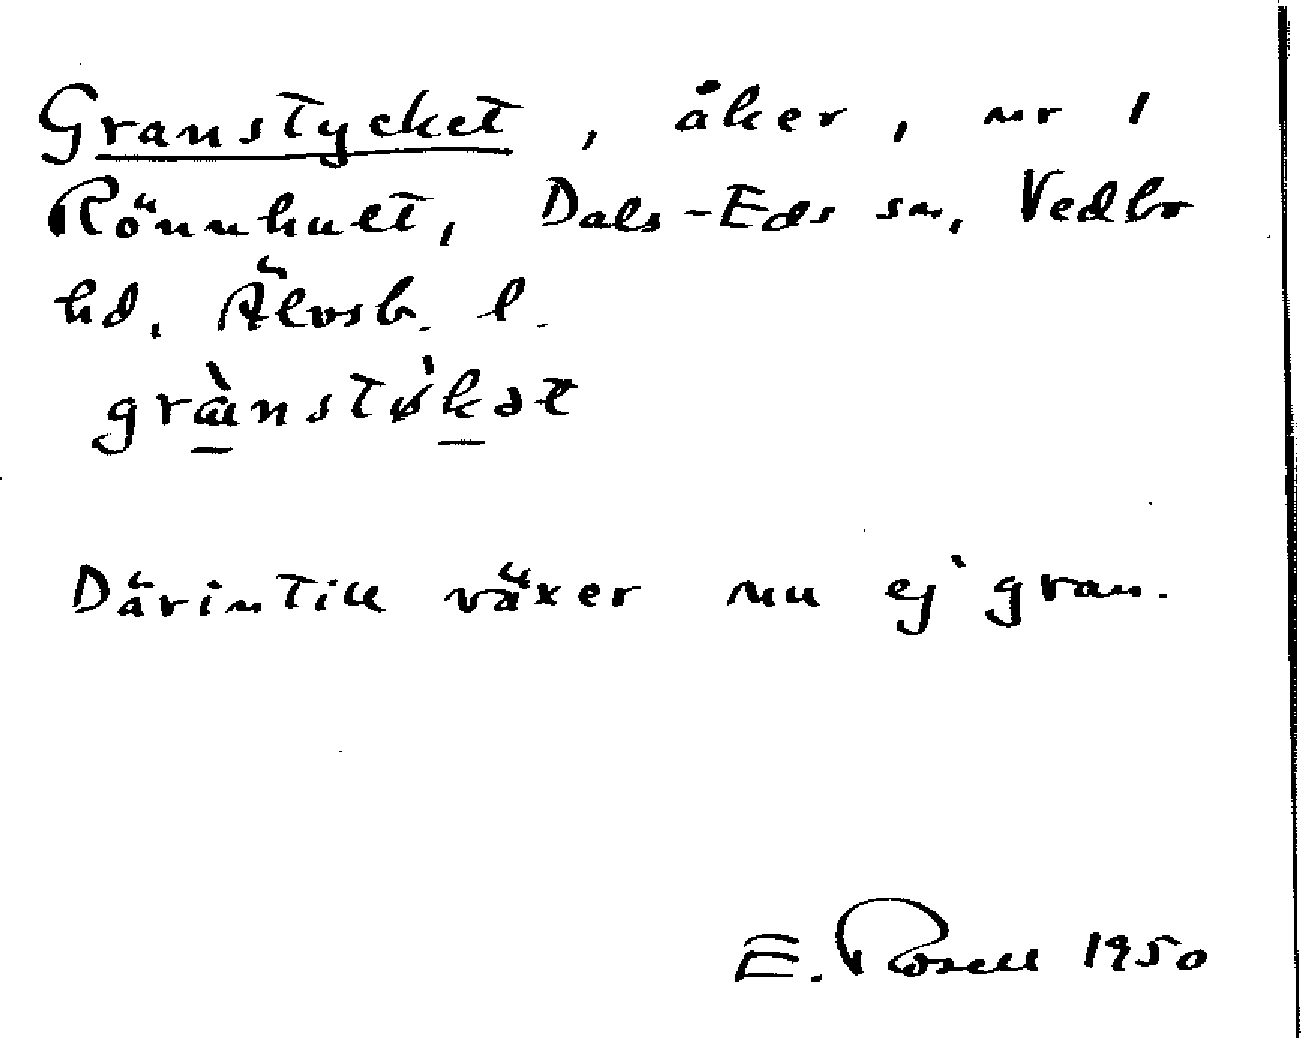 Granstycket, åker, nr 1
Rönnhult, Dals-Eds sn, Vedbo
hd, Älvsb. l.
grànstø̀kət
Därintill växer nu ej gran.
E. Rosell 1950